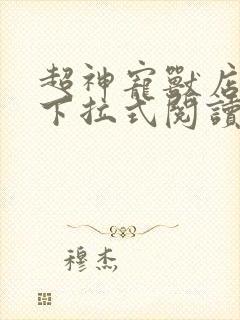 超神寵獸店
下拉式閱讀
穆杰